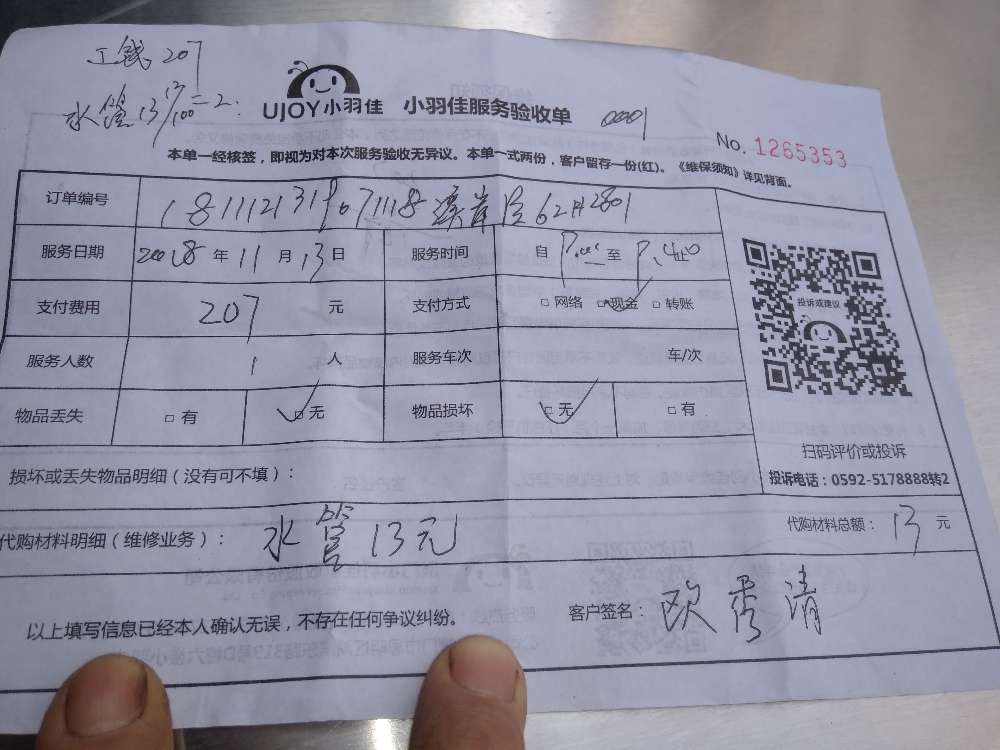 工钱207
水管13
UJOY小羽佳 小羽佳服务验收单
No. 1265353
本单一经核签，即视为对本次服务验收无异议。本单一式两份，客户留存一份(红)。《维保须知》详见背面。
订单编号
服务日期 2018年11月13日 服务时间 自 至
支付费用 207 元 支付方式 □网络 □现金 □转账
服务人数 1 人 服务车次 车/次
物品丢失 □有 □无 物品损坏 □无 □有
投诉或建议
扫码评价或投诉
投诉电话：0592-5178888转2
损坏或丢失物品明细（没有可不填）：
代购材料明细（维修业务）： 水管13元 代购材料总额： 13 元
以上填写信息已经本人确认无误，不存在任何争议纠纷。 客户签名： 欧秀清